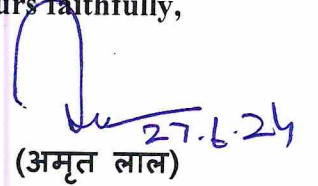 urs faithfully,
27.6.24
(अमृत लाल)